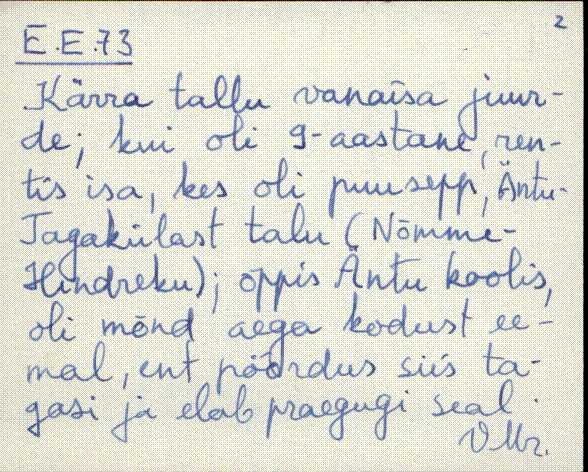 2
E.E.73
Kärra tallu vanaisa juur-
de; kui oli 9-aastane, ren-
tis isa, kes oli puusepp, Äntu-
Tagakülast talu (Nõmme-
Hindreku); õppis Äntu koolis,
oli mõnd aega kodust ee-
mal, ent pöördus siis ta-
gasi ja elab praegugi seal.
VMr.